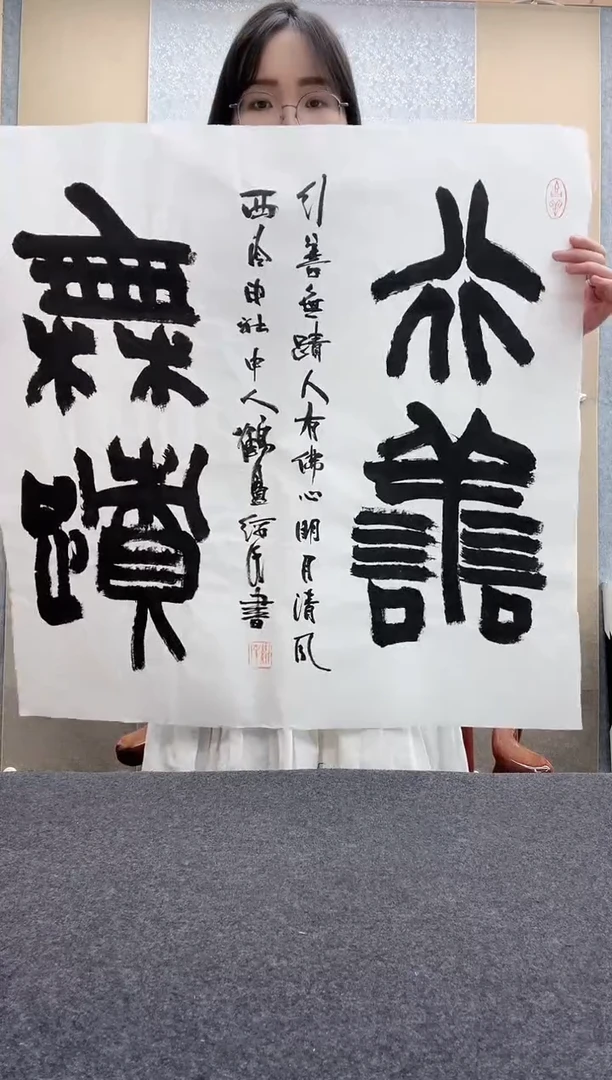 行善
行善無蹟人有佛心明月清風
西泠印社中人書
無蹟